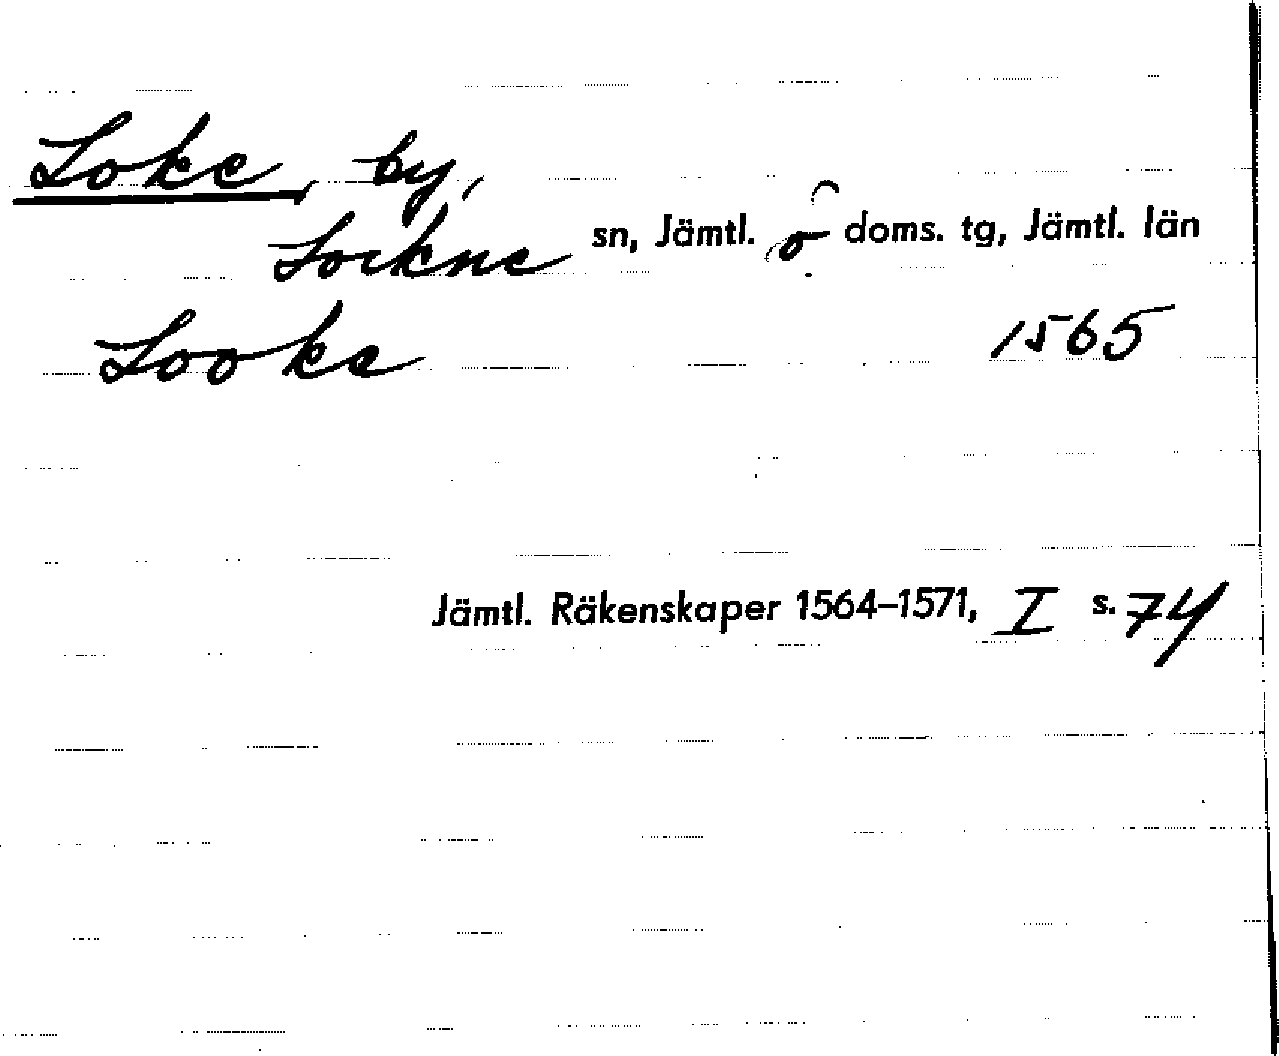 Loke, by,
Lockne sn, Jämtl. ö doms. tg, Jämtl. län
Looke 1565
Jämtl. Räkenskaper 1564–1571, I s. 74